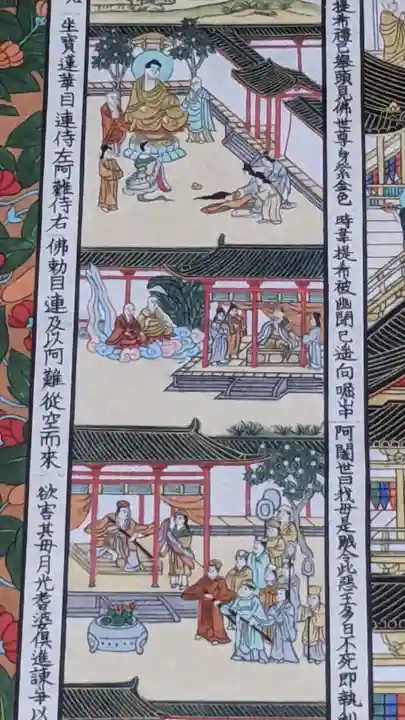 提布禮已舉頭見佛世尊身紫金色
時韋提布被幽閉已遙向崛山
阿闍世曰我母是賊今此惡王多日不死即執
坐寶蓮華目連侍左阿難侍右
佛勅目連及以阿難從空而來
欲害其母月光耆婆俱進諫爭以